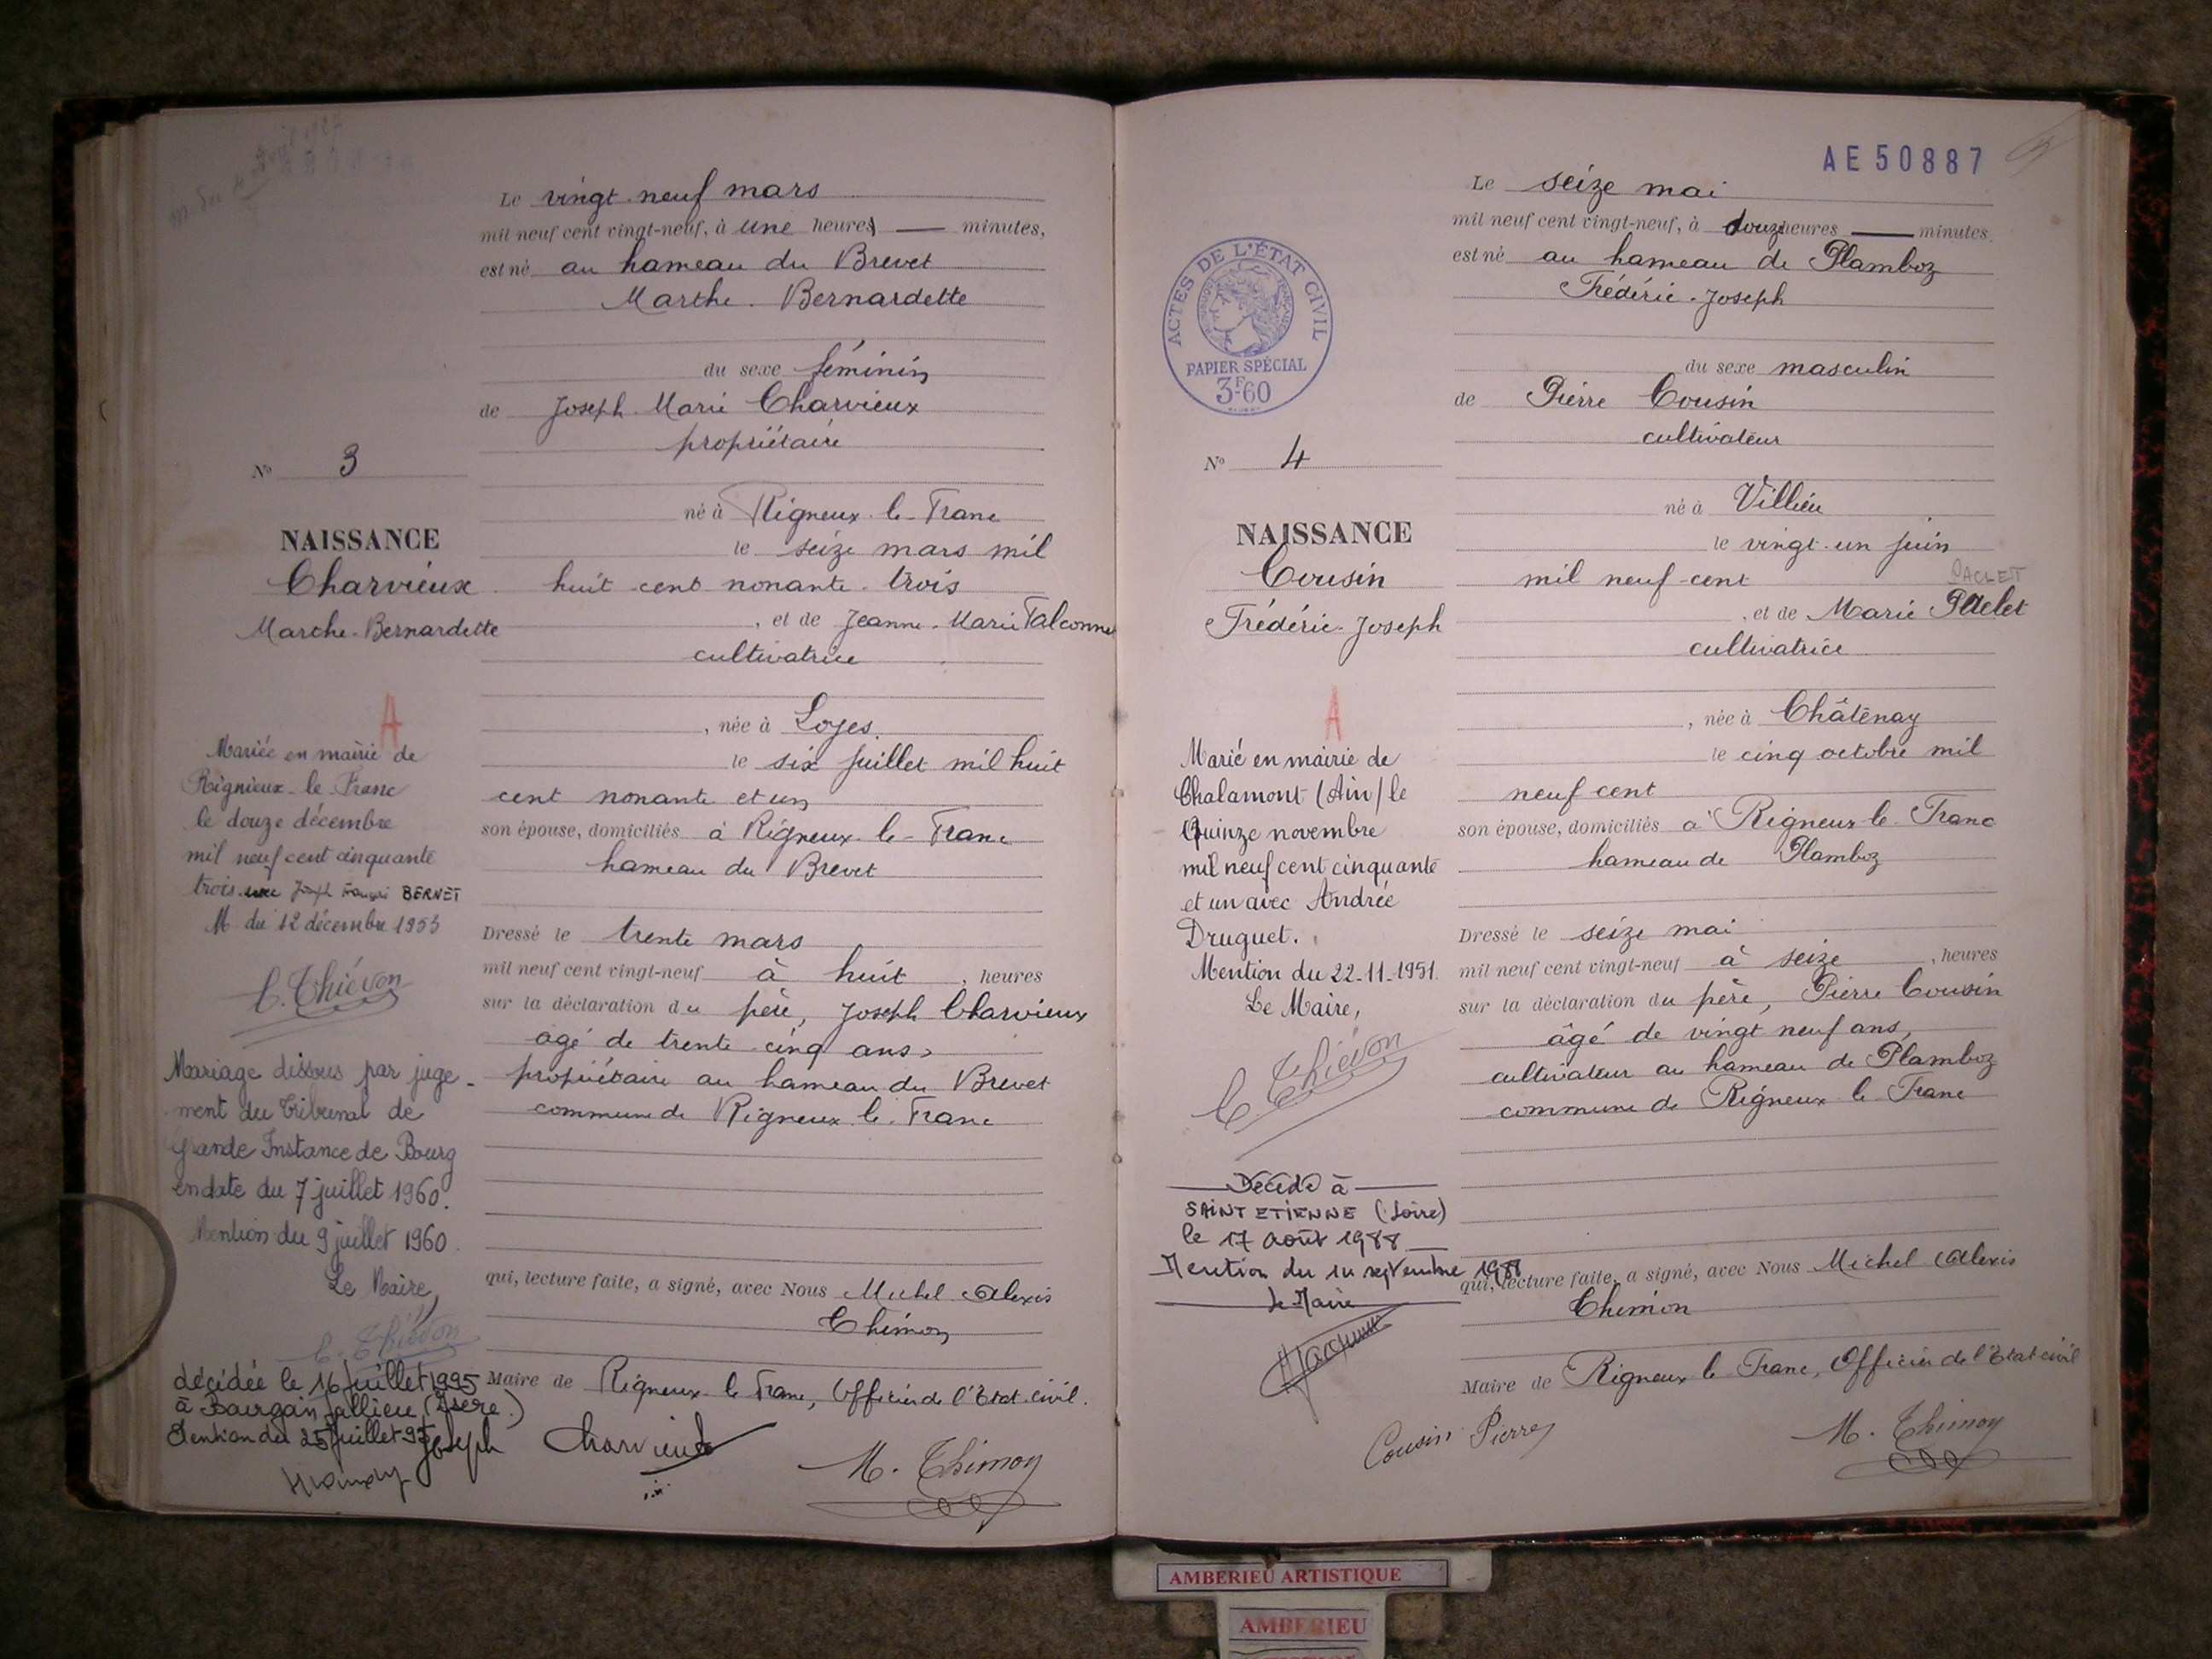 Le vingt neuf mars
mil neuf cent vingt-neuf, à une heures — minutes,
est né au hameau du Brevet
Marthe. Bernardette
du sexe féminin
de Joseph Marie Charvieux
propriétaire
né à Rigneux-le-Franc
le seize mars mil
huit cent nonante-trois
, et de Jeanne-Marie Falconnet
cultivatrice
, née à Loyes.
le six juillet mil huit
cent nonante et un
son épouse, domiciliés à Rigneux-le-Franc
hameau du Brevet
Dressé le trente mars
mil neuf cent vingt-neuf à huit , heures
sur la déclaration du père, Joseph Charvieux
âgé de trente-cinq ans,
propriétaire au hameau du Brevet
commune de Rigneux-le-Franc
qui, lecture faite, a signé, avec Nous Michel Alexis
Thimon
Maire de Rigneux-le-Franc, Officier de l'Etat-civil.
Joseph Charvieux
M. Thimon
N° 3
NAISSANCE
Charvieux
Marthe-Bernardette
A
Mariée en mairie de
Rignieux-le-Franc
le douze décembre
mil neuf cent cinquante
trois avec Joseph François BERNET
M du 12 décembre 1953
C. Thiévon
Mariage dissous par juge-
ment du Tribunal de
Grande Instance de Bourg
en date du 7 juillet 1960.
Mention du 9 juillet 1960.
Le Maire,
C. Thiévon
décédée le 16 juillet 1995
à Bourgoin Jallieu (Isère.)
Mention du 25 juillet 95
AE 50887
Le seize mai
mil neuf cent vingt-neuf, à douze heures — minutes.
est né au hameau de Plamboz
Frédéric-Joseph
du sexe masculin
de Pierre Cousin
cultivateur
né à Villieu
le vingt-un juin
mil neuf-cent
PACLET
, et de Marie Paclet
cultivatrice
, née à Châtenay
le cinq octobre mil
neuf cent
son épouse, domiciliés à Rigneux-le-Franc
hameau de Plamboz
Dressé le seize mai
mil neuf cent vingt-neuf à seize , heures
sur la déclaration du père, Pierre Cousin
âgé de vingt neuf ans,
cultivateur au hameau de Plamboz
commune de Rigneux-le-Franc
qui, lecture faite, a signé, avec Nous Michel Alexis
Thimon
Maire de Rigneux-le-Franc, Officier de l'Etat civil
Cousin Pierre
M. Thimon
ACTES DE L'ÉTAT CIVIL
PAPIER SPÉCIAL
3F60
N° 4
NAISSANCE
Cousin
Frédéric-Joseph
A
Marié en mairie de
Chalamont (Ain) le
Quinze novembre
mil neuf cent cinquante
et un avec Andrée
Druguet.
Mention du 22-11-1951.
Le Maire,
C. Thiévon
Décédé à
SAINT ETIENNE (Loire)
le 17 août 1988
Mention du septembre 1988
Le Maire
AMBERIEU ARTISTIQUE
AMBERIEU